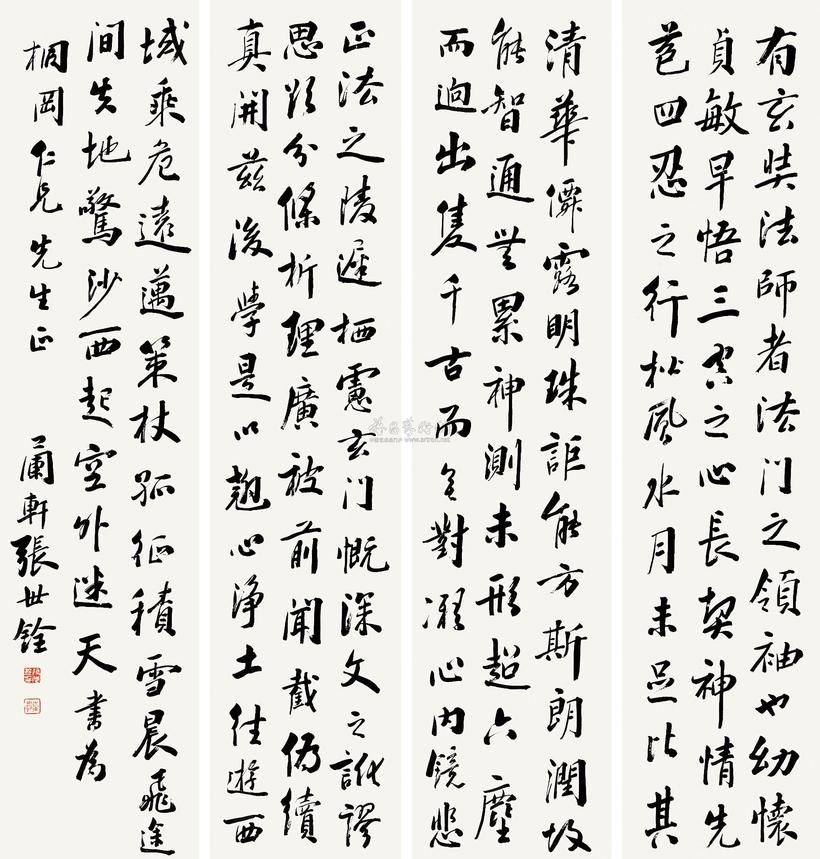 有玄奘法師者法門之領袖也幼懷
貞敏早悟三空之心長契神情先
苞四忍之行松風水月未足比其
清華僊露明珠詎能方斯朗潤故
能智通無累神測未形超六塵
而迥出隻千古而無對凝心內鏡悲
正法之陵遲栖慮玄門慨深文之訛謬
思欲分條析理廣被前聞截偽續
真開茲後學是以翹心淨土往遊西
域乘危遠邁策杖孤征積雪晨飛途
間失地驚沙西起空外迷天書為
桐岡仁兄先生正 蘭軒張世銓